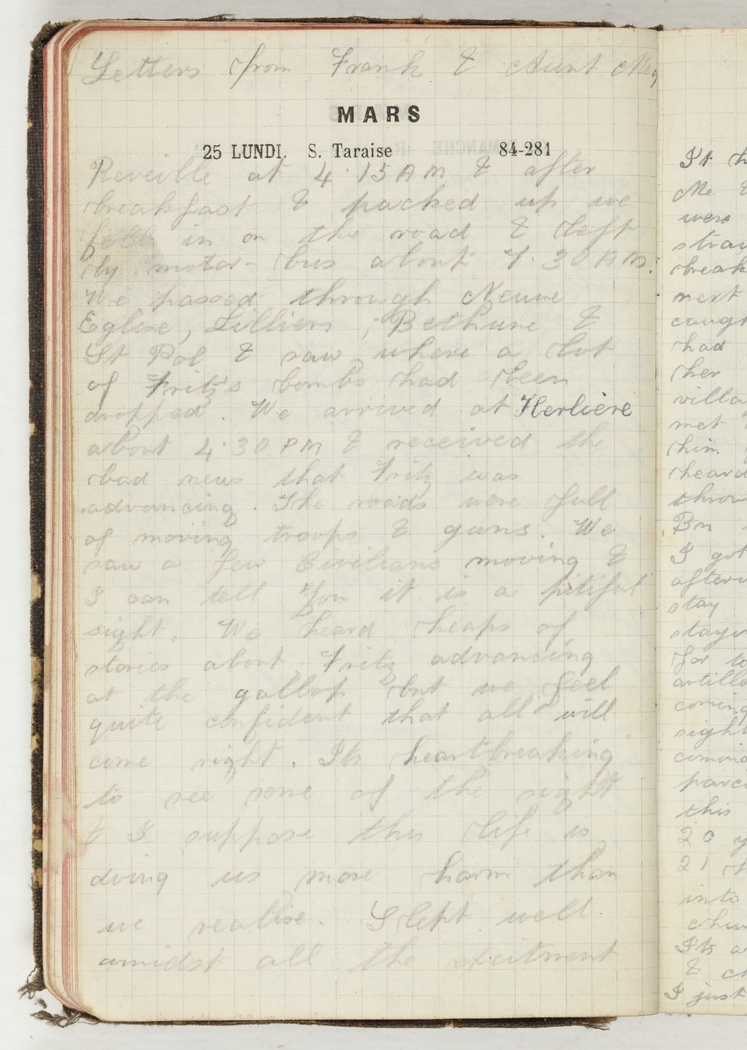 Letters from Frank & Aunt Meg
MARS
25 LUNDI. S. Taraise 84-281
Reveille at 4.15 AM & after
breakfast & packed up we
fell in on the road & left
by motor-bus about 7.30 AM.
We passed through Neuve
Eglise, Lilliers, Bethune &
St Pol & saw where a lot
of Fritz's bombs had been
dropped. We arrived at Herliere
about 4.30 PM & received the
bad news that Fritz was
advancing. The roads were full
of moving troops & guns. We
saw a few Civilians moving &
I can tell You it is a pitiful
sight. We heard heaps of
stories about Fritz advancing
at the gallop but we feel
quite confident that all will
come right. Its heartbreaking
to see some of the sights
& I suppose this life is
doing us more harm than
we realise. Slept well
amidst all the excitment
It
Me
were
next
had
her
met
him
heard
Bn
I got
stay
for
coming
this
20
21
into
Its
&
I just